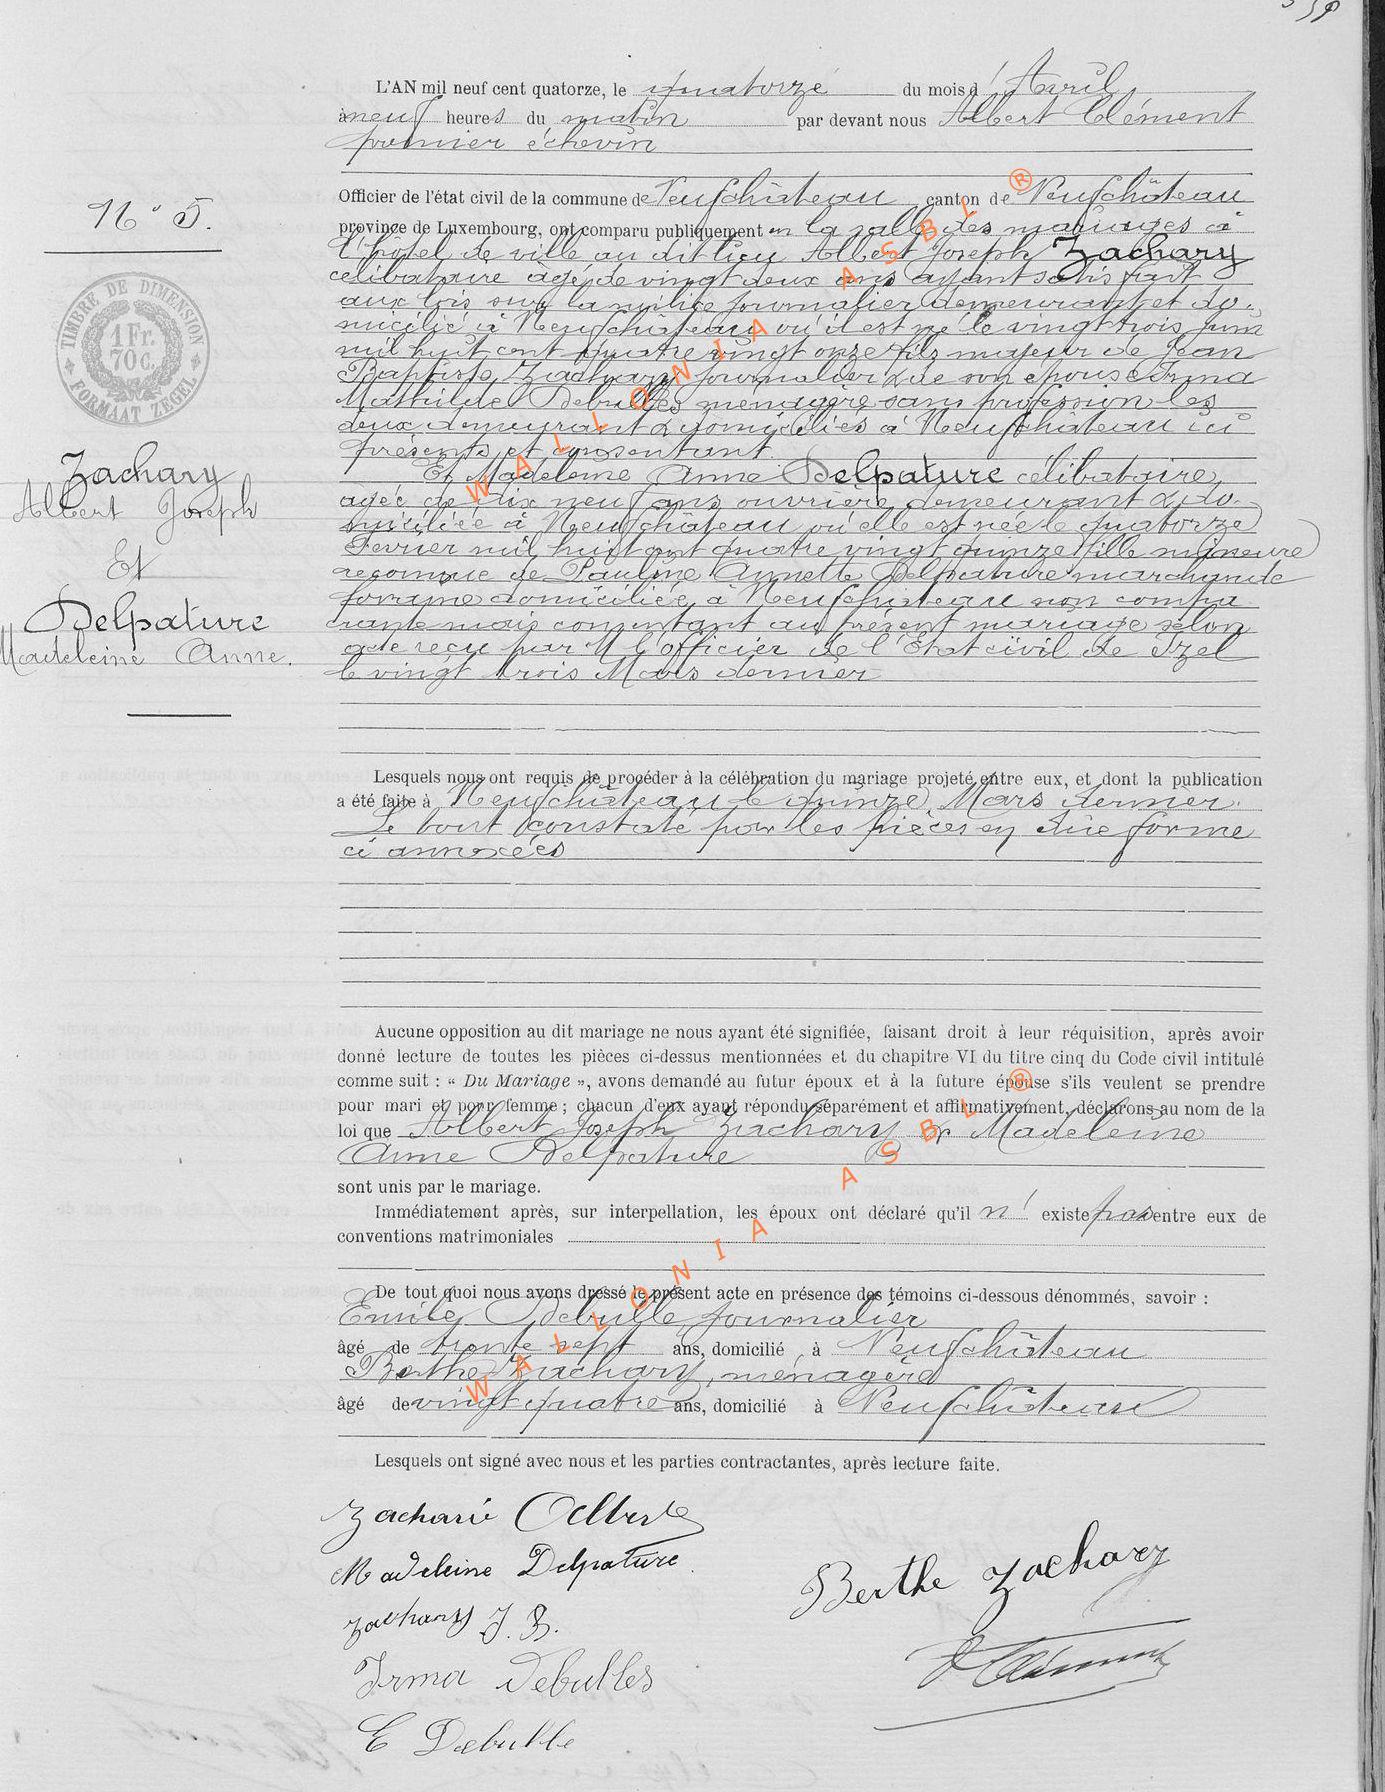 L'AN mil neuf cent quatorze, le quatorze du mois d'Avril
à neuf heures du matin par devant nous Albert Clément
premier échevin
Officier de l'état civil de la commune de Neufchâteau canton de Neufchâteau
province de Luxembourg, ont comparu publiquement en la salle des mariages à
N° 5.
l'hôtel de ville au dit lieu Albert Joseph Zachary
célibataire agé de vingt deux ans ayant satisfait
aux lois sur la milice journalier demeurant et do-
micilié à Neufchâteau où il est né le vingt trois juin
mil huit cent quatre vingt onze fils majeur de Jean
Baptiste Zachary journalier & de son épouse Irma
Mathilde Debulles ménagère sans profession les
deux demeurant & domiciliés à Neufchâteau ici
présents et consentant
TIMBRE DE DIMENSION
1 Fr.
70 c.
FORMAAT ZEGEL
Zachary
Albert Joseph
Et
Delpature
Madeleine Anne.
Et Madeleine Anne Delpature célibataire
agée de dix neuf ans ouvrière demeurant & do-
miciliée à Neufchâteau où elle est née le quatorze
Fevrier mil huit cent quatre vingt quinze fille mineure
reconnue de Pauline Annette Delpature marchande
foraine domiciliée à Neufchâteau non compa
rante mais consentant au présent mariage selon
acte reçu par M l'officier de l'Etat civil de Izel
le vingt trois Mars dernier
Lesquels nous ont requis de procéder à la célébration du mariage projeté entre eux, et dont la publication
a été faite à Neufchâteau le quinze Mars dernier.
Le tout constaté par les pièces en dûe forme
ci annexées
Aucune opposition au dit mariage ne nous ayant été signifiée, faisant droit à leur réquisition, après avoir
donné lecture de toutes les pièces ci-dessus mentionnées et du chapitre VI du titre cinq du Code civil intitulé
comme suit : « Du Mariage », avons demandé au futur époux et à la future épouse s'ils veulent se prendre
pour mari et pour femme ; chacun d'eux ayant répondu séparément et affirmativement, déclarons au nom de la
loi que Albert Joseph Zachary & Madeleine
Anne Delpature
sont unis par le mariage.
Immédiatement après, sur interpellation, les époux ont déclaré qu'il n' existe pas entre eux de
conventions matrimoniales
De tout quoi nous avons dressé le présent acte en présence des témoins ci-dessous dénommés, savoir :
Emile Debulle journalier
âgé de trente sept ans, domicilié à Neufchâteau
Berthe Zachary, ménagère
âgé de vingt quatre ans, domicilié à Neufchâteau
Lesquels ont signé avec nous et les parties contractantes, après lecture faite.
Zacharie Albert
Madeleine Delpature.
Zachary J. B.
Irma Debulles
E Debulle
Berthe Zachary
A Clément
WALLONIA ASBL ®
WALLONIA ASBL ®